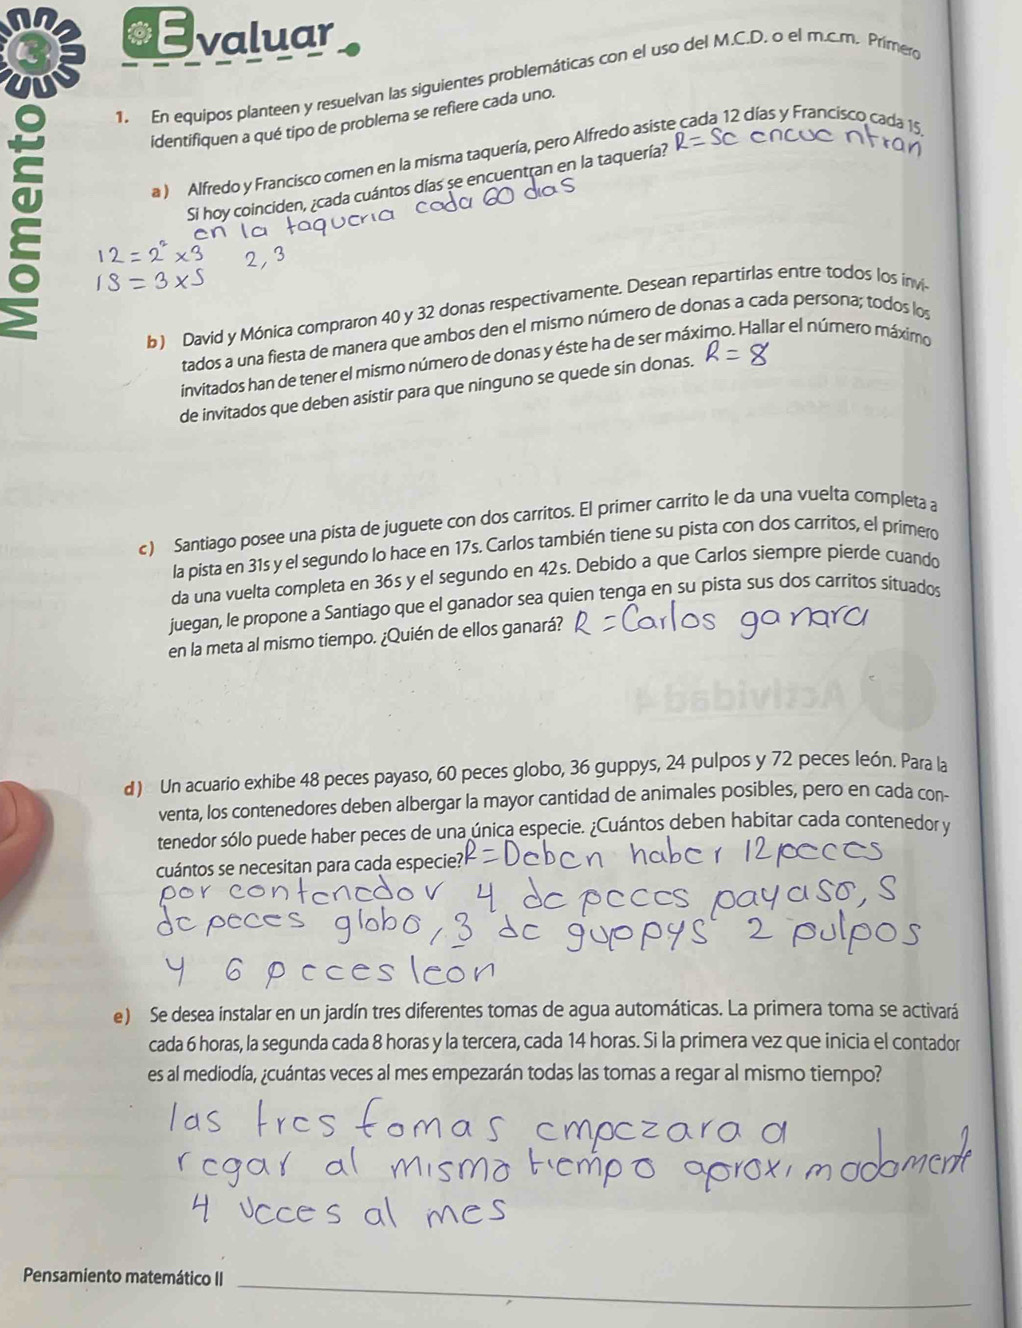 3
Evaluar
Momento
1. En equipos planteen y resuelvan las siguientes problemáticas con el uso del M.C.D. o el m.c.m. Primero
identifiquen a qué tipo de problema se refiere cada uno.
a) Alfredo y Francisco comen en la misma taquería, pero Alfredo asiste cada 12 días y Francisco cada 15.
Si hoy coinciden, ¿cada cuántos días se encuentran en la taquería? R= Se encuentran
en la taqueria cada 60 dias
12 = 2² x 3 2, 3
15 = 3 x 5
b) David y Mónica compraron 40 y 32 donas respectivamente. Desean repartirlas entre todos los invi-
tados a una fiesta de manera que ambos den el mismo número de donas a cada persona; todos los
invitados han de tener el mismo número de donas y éste ha de ser máximo. Hallar el número máximo
de invitados que deben asistir para que ninguno se quede sin donas. R = 8
c) Santiago posee una pista de juguete con dos carritos. El primer carrito le da una vuelta completa a
la pista en 31s y el segundo lo hace en 17s. Carlos también tiene su pista con dos carritos, el primero
da una vuelta completa en 36s y el segundo en 42s. Debido a que Carlos siempre pierde cuando
juegan, le propone a Santiago que el ganador sea quien tenga en su pista sus dos carritos situados
en la meta al mismo tiempo. ¿Quién de ellos ganará? R = Carlos ganara
d) Un acuario exhibe 48 peces payaso, 60 peces globo, 36 guppys, 24 pulpos y 72 peces león. Para la
venta, los contenedores deben albergar la mayor cantidad de animales posibles, pero en cada con-
tenedor sólo puede haber peces de una única especie. ¿Cuántos deben habitar cada contenedor y
cuántos se necesitan para cada especie? R = Deben haber 12 peces
por contenedor 4 de peces payaso, 5
de peces globo, 3 de guppys 2 pulpos
y 6 peces leon
e) Se desea instalar en un jardín tres diferentes tomas de agua automáticas. La primera toma se activará
cada 6 horas, la segunda cada 8 horas y la tercera, cada 14 horas. Si la primera vez que inicia el contador
es al mediodía, ¿cuántas veces al mes empezarán todas las tomas a regar al mismo tiempo?
las tres tomas empezara a
regar al mismo tiempo aproximadamente
4 veces al mes
Pensamiento matemático II